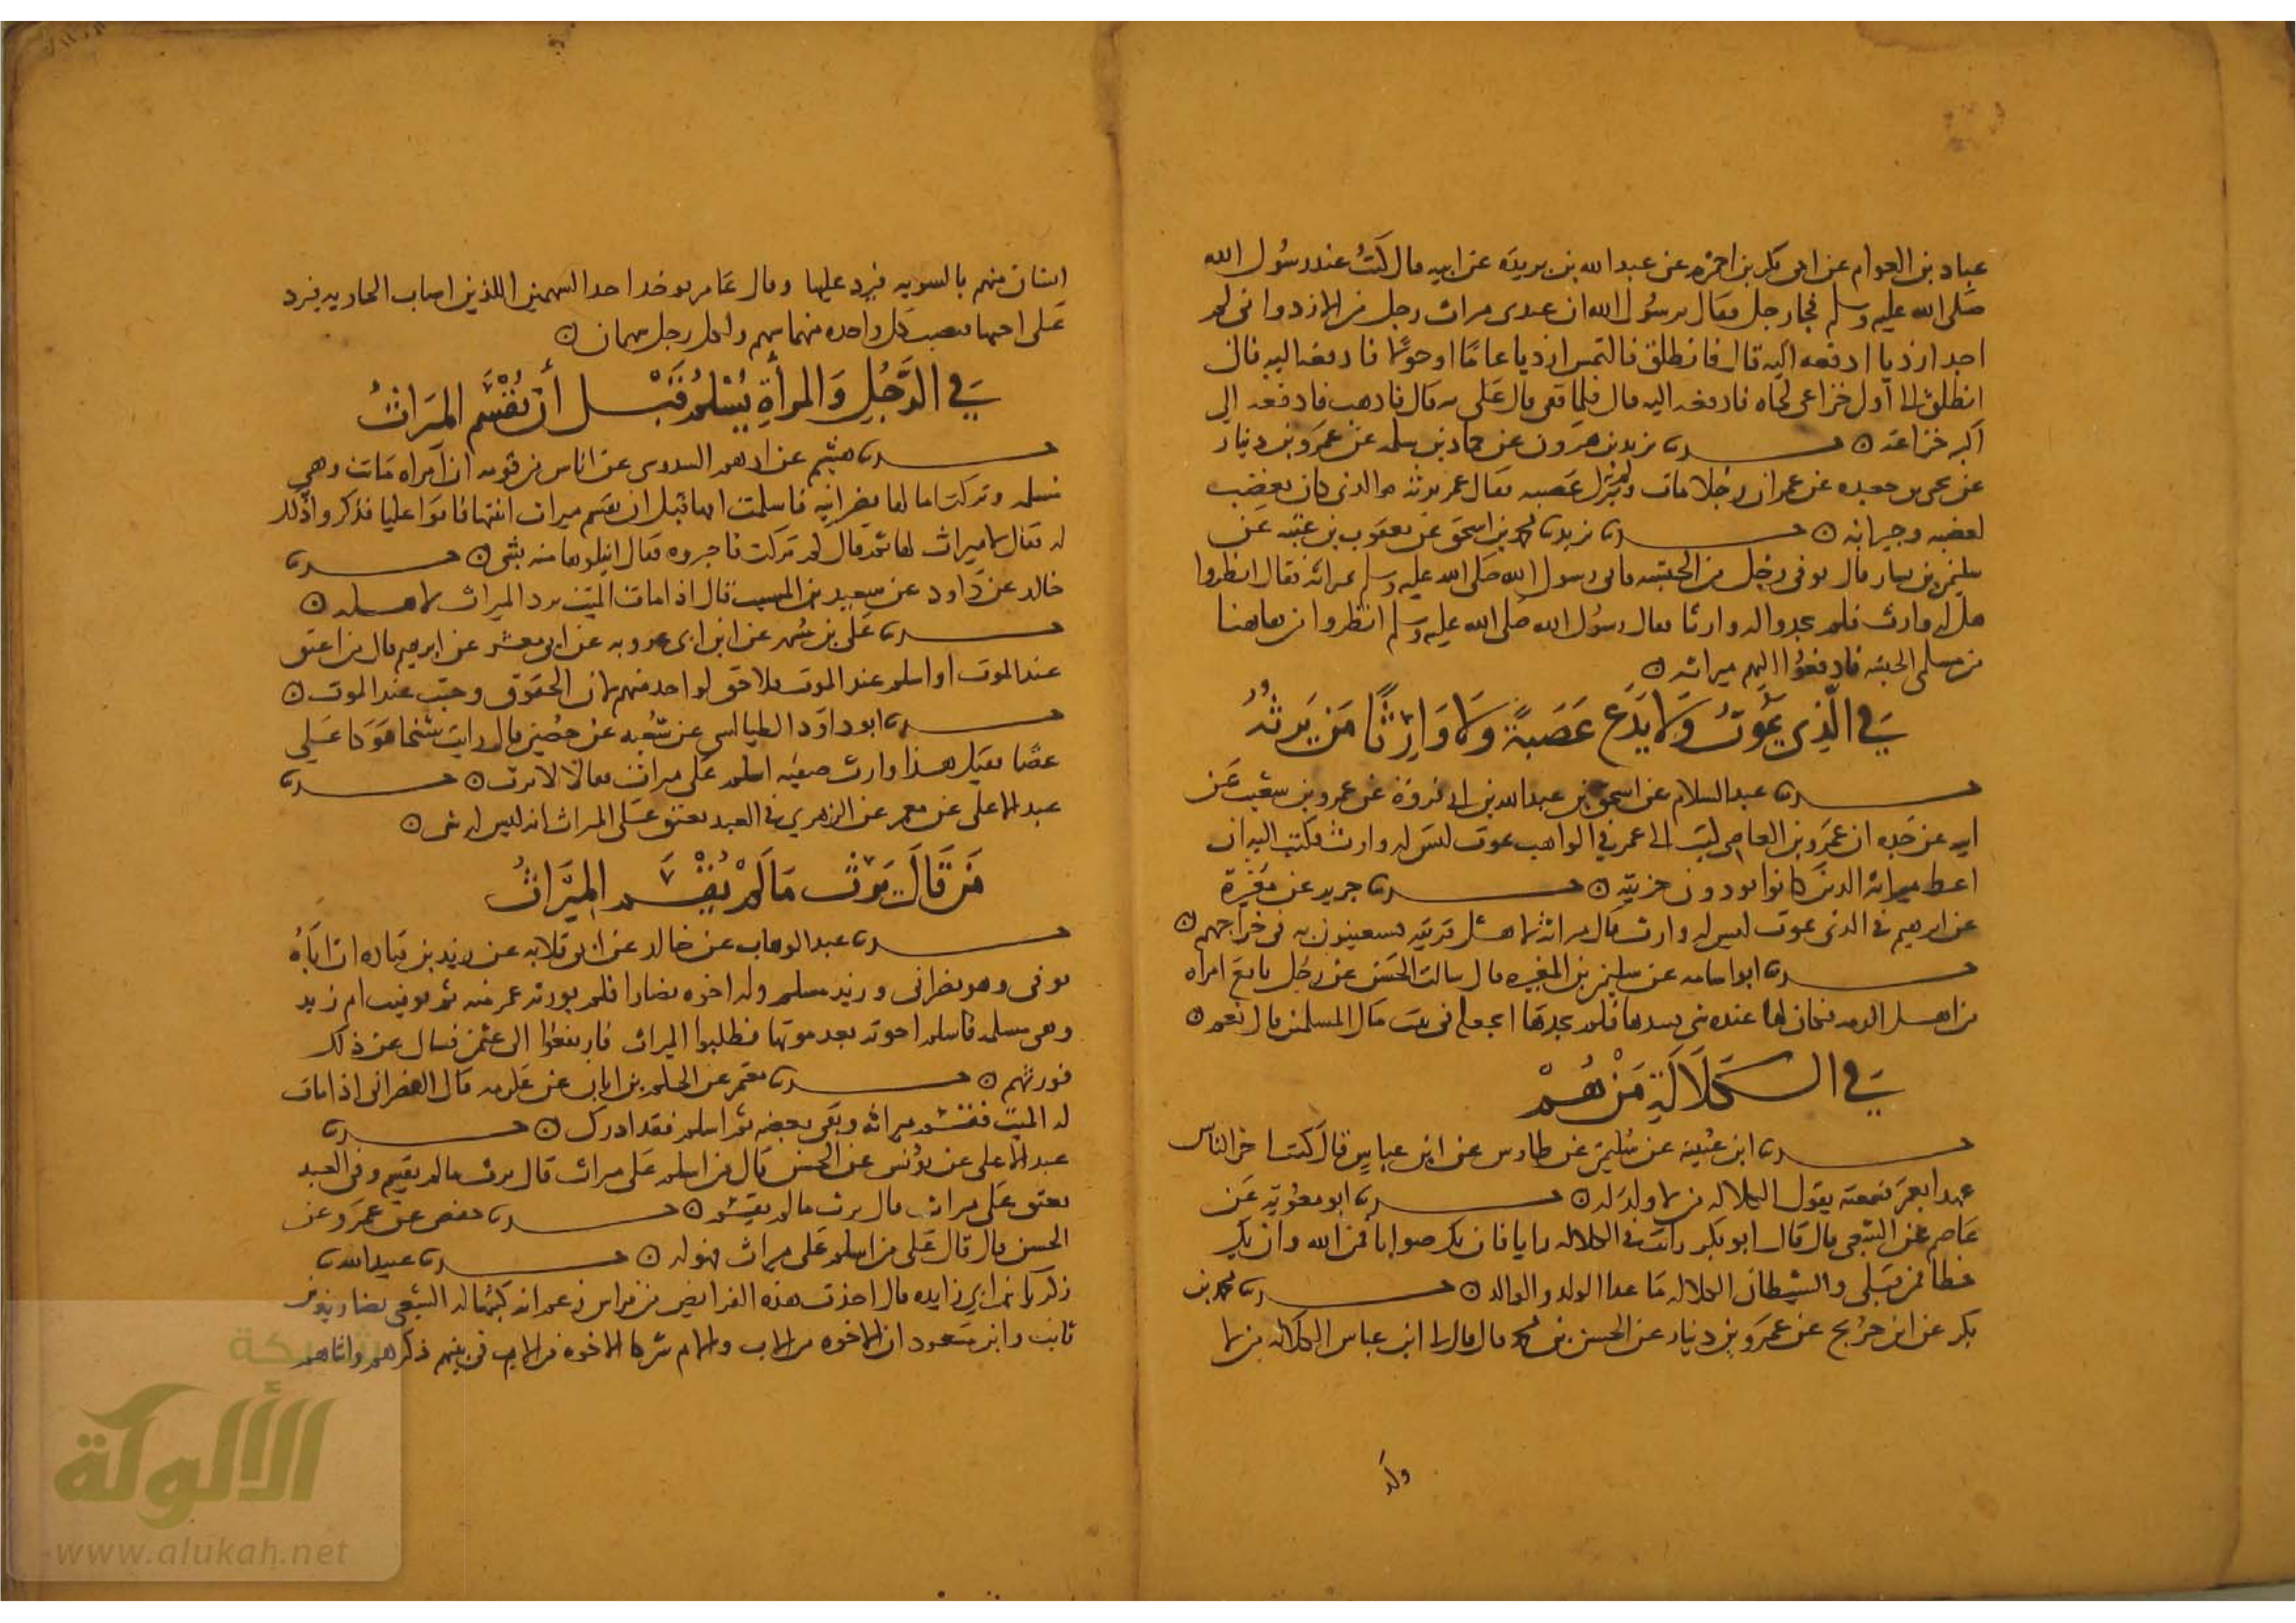 عباد بن العوام عن ابى بكر بن احمر عن عبد الله بن بريدة عن ابيه قال كنت عند رسول الله
صلى الله عليه وسلم فجاء رجل فقال يرسول الله ان عندى ميراث رجل من الازد وانى لم
اجد ازديا ادفعه اليه قال فانطلق فالتمس ازديا عاما او حولا فادفعه اليه قال
انطلق الى اول خزاعى تجده فادفعه اليه قال فلما قفى قال على به قال فاذهب فادفعه الى
اكبر خزاعة ه حدثنا يزيد بن هرون عن حماد بن سلمه عن عمرو بن دينار
عن يحيى بن جعده عن عمر ان رجلا مات ولم يترك عصبه فقال عمر يرثه الذى كان يغضب
لغضبه وجيرانه ه حدثنا يزيد نا محمد بن اسحق عن يعقوب بن عتبه عن
سليمن بن يسار قال توفى رجل من الحبشه فاتى رسول الله صلى الله عليه وسلم بميراثه فقال انظروا
هل له وارث فلم يجدوا له وارثا فقال رسول الله صلى الله عليه وسلم انظروا من هاهنا
من مسلمى الحبشه فادفعوا اليهم ميراثه ه
فى الذى يموت ولا يدع عصبة ولا وارثا من يرثه
حدثنا عبد السلام عن اسحق بن عبد الله بن ابى فروة عن عمرو بن شعيب عن
ابيه عن جده ان عمرو بن العاص كتب الى عمر فى الراهب يموت ليس له وارث فكتب اليه ان
اعط ميراثه الذين كانوا يودون جزيته ه حدثنا جرير عن مغيرة
عن ابرهيم فى الذى يموت ليس له وارث قال ميراثه لاهل قريته يستعينون به فى خراجهم ه
حدثنا ابو اسامه عن سليمن بن المغيره قال سالت الحسن عن رجل بايع امراه
من اهل الذمه فكان لها عنده شى فلم يجدها ايجعله فى بيت مال المسلمين قال نعم ه
فى الكلالة من هم
حدثنا ابن عيينه عن سليمن عن طاوس عن ابن عباس قال كنت اخر الناس
عهدا بعمر فسمعته يقول الكلاله من لا ولد له ه حدثنا ابو معوية عن
عاصم عن الشعبى قال قال ابو بكر رايت فى الكلاله رايا فان يكن صوابا فمن الله وان يكن
خطا فمن قبلى والشيطان الكلاله ما عدا الولد والوالد ه حدثنا محمد بن
بكر عن ابن جريج عن عمرو بن دينار عن الحسن بن محمد قال قال لى ابن عباس الكلاله من لا
ولد
انسان منهم بالسويه فيرد عليها وقال عامر يوخذ احد السهمين اللذين اصاب الجاريه فيرد
على اختها فنصيب كل واحده منهما سهم ولكل رجل سهمان ه
فى الرجل والمرأة يسلم قبل أن يقسم الميراث
حدثنا هشيم عن ادهم السدوسى عن اناس من قومه ان امراه ماتت وهى
مسلمه وتركت اما لها نصرانيه فاسلمت امها قبل ان يقسم ميراث ابنتها فاتوا عليا فذكروا ذلك
له فقال لا ميراث لها ثم قال كم تركت فاخبروه فقال انيلوها منه بشى ه حدثنا
خالد عن داود عن سعيد بن المسيب قال اذا مات الميت يرد الميراث لاهله ه
حدثنا على بن مسهر عن ابن ابى عروبه عن ابى معشر عن ابرهيم قال من اعتق
عند الموت او اسلم عند الموت فلا حق لواحد منهم لان الحقوق وجبت عند الموت ه
حدثنا ابو داود الطيالسى عن شعبه عن حصين قال رايت شيخا يتوكا على
عصا فقيل هذا وارث صفيه اسلم على ميراث فلم يورث ه حدثنا
عبد الاعلى عن معمر عن الزهرى فى العبد يعتق على الميراث انه ليس له شى ه
من قال يرث ما لم يقسم الميراث
حدثنا عبد الوهاب عن خالد عن ابى قلابه عن يزيد بن قتاده ان اباه
توفى وهو نصرانى ويزيد مسلم وله اخوه نصارا فلم يورثه عمر منه ثم توفيت ام يزيد
وهى مسلمه فاسلم اخوته بعد موتها فطلبوا الميراث فارتفعوا الى عثمن فسال عن ذلك
فورثهم ه حدثنا معتمر عن الحكم بن ابان عن عكرمه قال النصرانى اذا مات
له الميت فقسم ميراثه وبقى بعضه ثم اسلم فقد ادرك ه حدثنا
عبد الاعلى عن يونس عن الحسن قال من اسلم على ميراث قال يرث ما لم يقسم وفى العبد
يعتق على ميراث قال يرث ما لم يقسم ه حدثنا حفص عن عمرو عن
الحسن قال قال على من اسلم على ميراث فهو له ه حدثنا عبيد الله نا
زكريا بن ابى زايده قال اخذت هذه الفرايض من فراس زعم انه كتبها له الشعبى قضا زيد بن
ثابت وابن مسعود ان الاخوه من الاب والام شركا الاخوه من الام فى بنيهم ذكرهم وانثاهم
شبكة
الألوكة
www.alukah.net